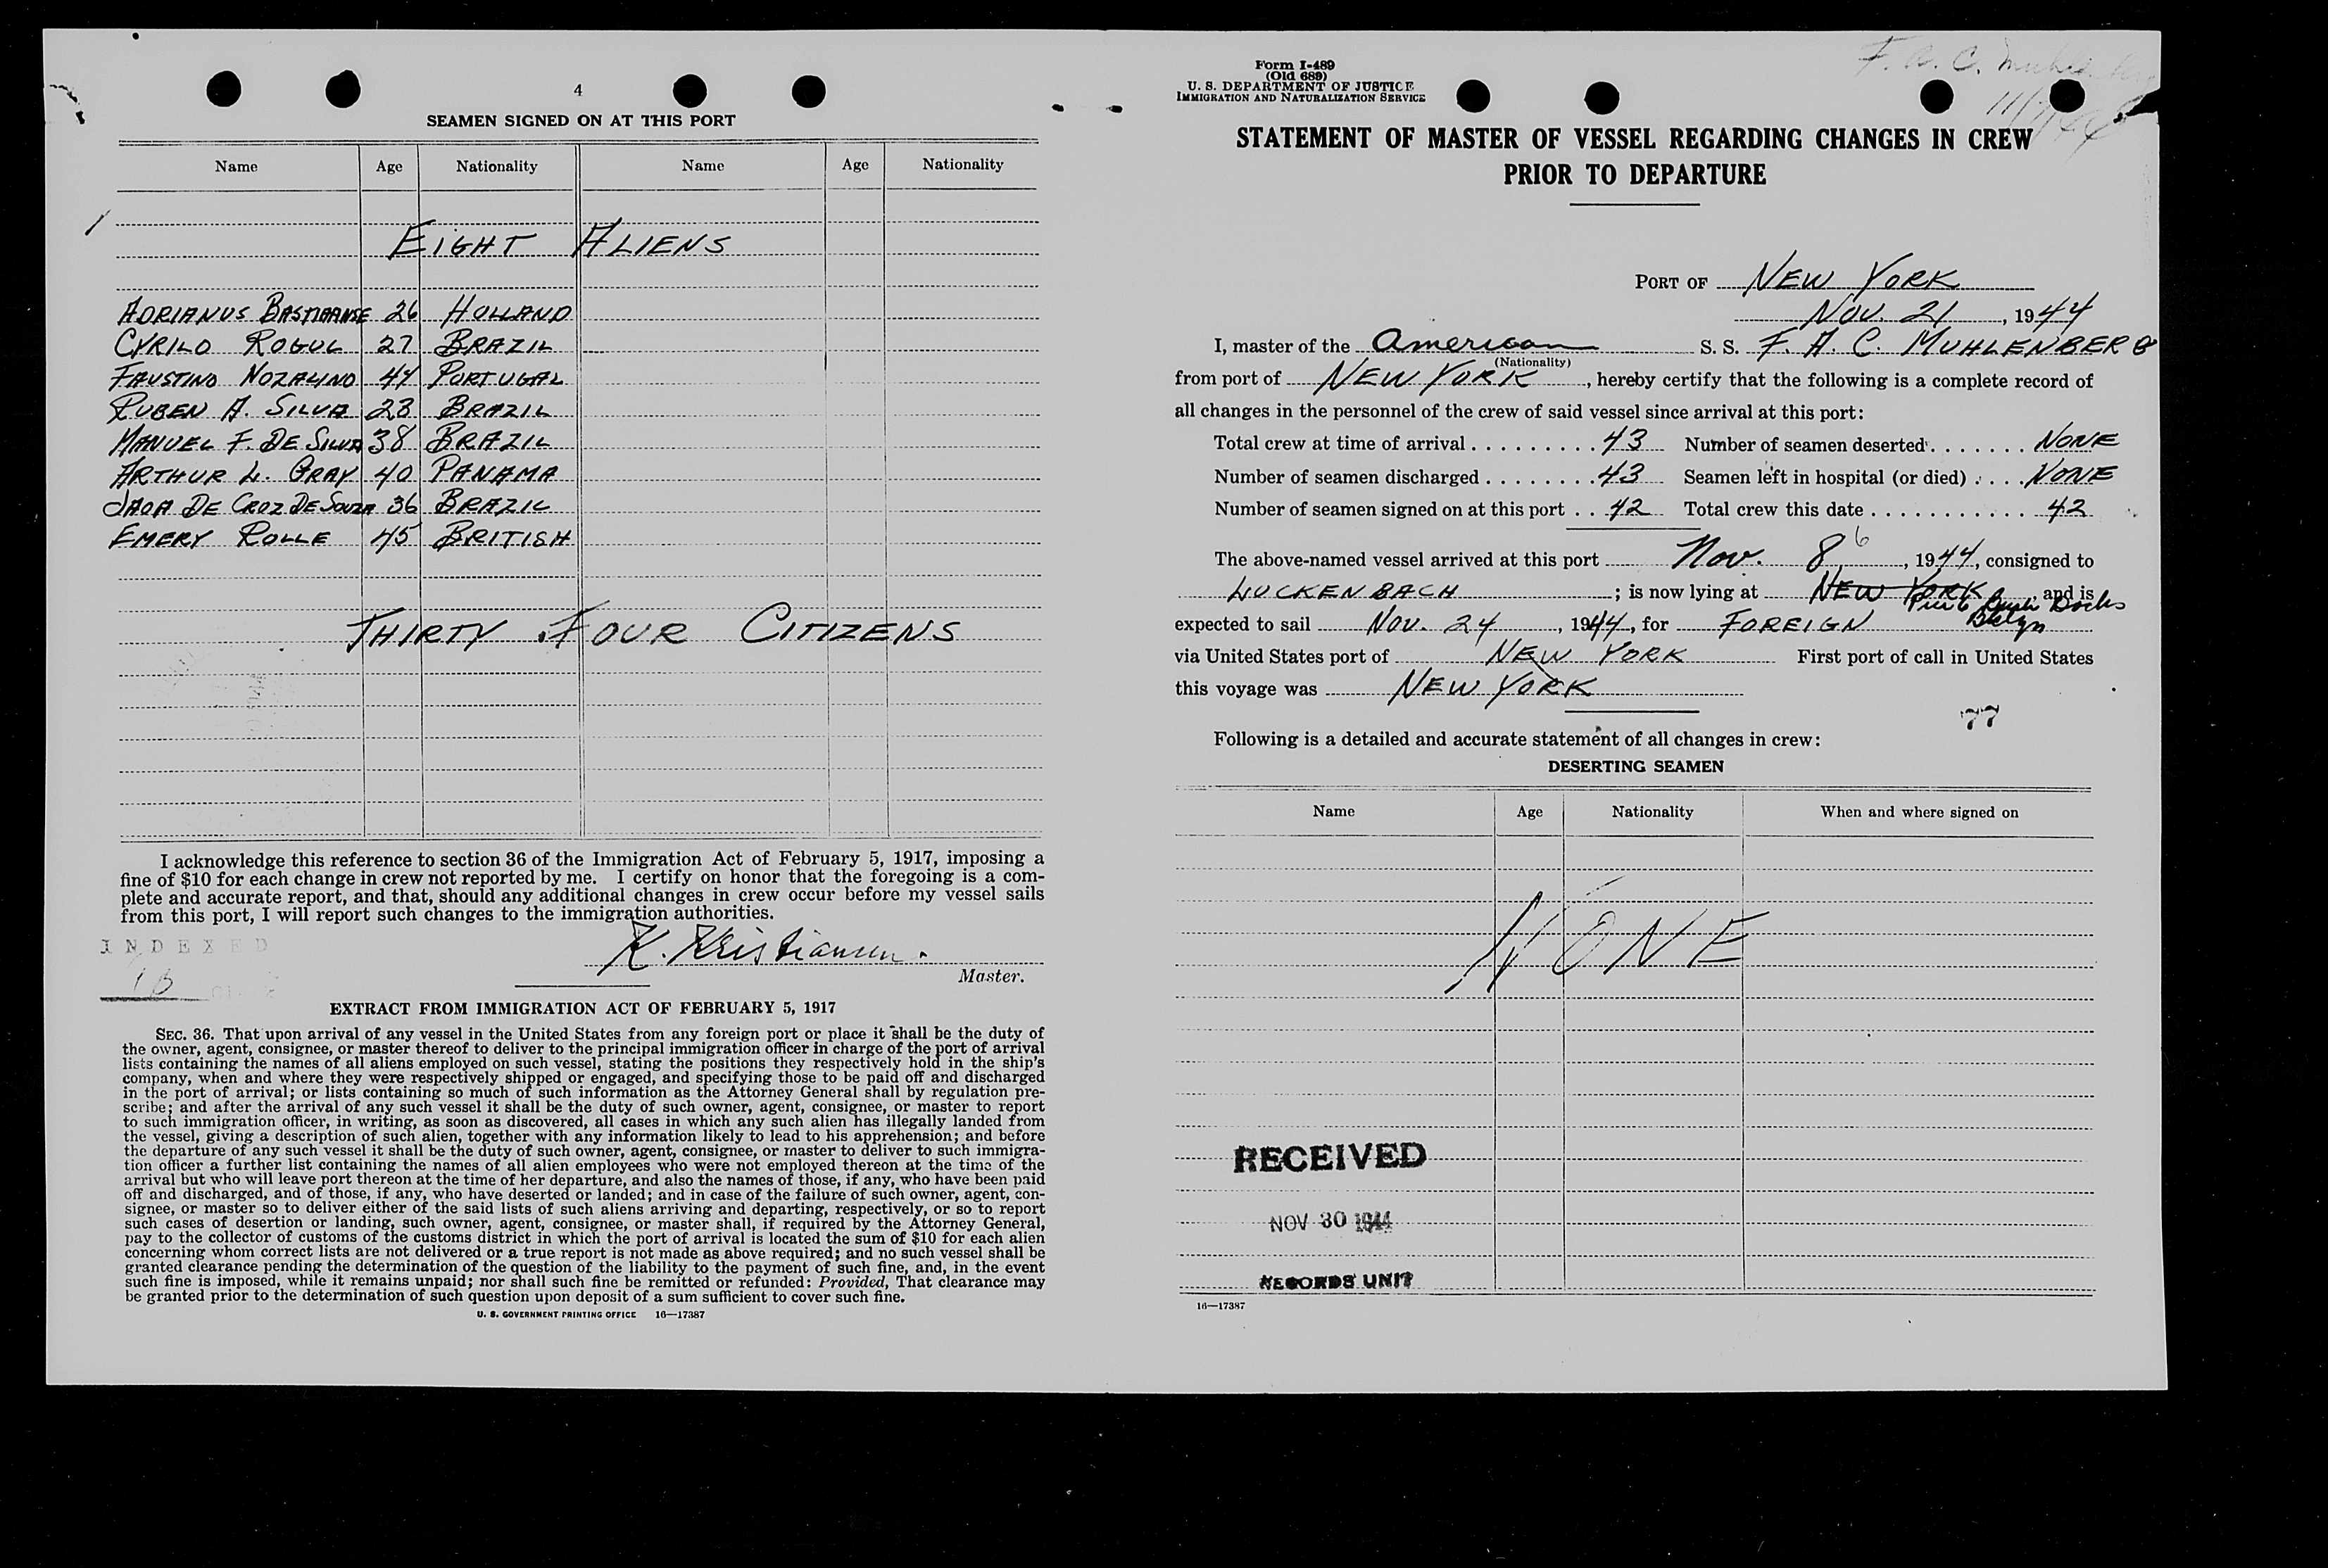 4
SEAMEN SIGNED ON AT THIS PORT
Name Age Nationality Name Age Nationality
EIGHT ALIENS
ADRIANUS BASTIAANSE 26 HOLLAND
CYRILO ROGUL 27 BRAZIL
FAUSTINO NOZALINO 44 PORTUGAL
RUBEN A. SILVA 23 BRAZIL
MANUEL F. DE SILVA 38 BRAZIL
ARTHUR L. GRAY 40 PANAMA
JAOA DE CROZ DE SOUZA 36 BRAZIL
EMERY ROLLE 45 BRITISH
THIRTY FOUR CITIZENS
I acknowledge this reference to section 36 of the Immigration Act of February 5, 1917, imposing a
fine of $10 for each change in crew not reported by me. I certify on honor that the foregoing is a com-
plete and accurate report, and that, should any additional changes in crew occur before my vessel sails
from this port, I will report such changes to the immigration authorities.
INDEXED
K. Kristiansen.
Master.
EXTRACT FROM IMMIGRATION ACT OF FEBRUARY 5, 1917
SEC. 36. That upon arrival of any vessel in the United States from any foreign port or place it shall be the duty of
the owner, agent, consignee, or master thereof to deliver to the principal immigration officer in charge of the port of arrival
lists containing the names of all aliens employed on such vessel, stating the positions they respectively hold in the ship's
company, when and where they were respectively shipped or engaged, and specifying those to be paid off and discharged
in the port of arrival; or lists containing so much of such information as the Attorney General shall by regulation pre-
scribe; and after the arrival of any such vessel it shall be the duty of such owner, agent, consignee, or master to report
to such immigration officer, in writing, as soon as discovered, all cases in which any such alien has illegally landed from
the vessel, giving a description of such alien, together with any information likely to lead to his apprehension; and before
the departure of any such vessel it shall be the duty of such owner, agent, consignee, or master to deliver to such immigra-
tion officer a further list containing the names of all alien employees who were not employed thereon at the time of the
arrival but who will leave port thereon at the time of her departure, and also the names of those, if any, who have been paid
off and discharged, and of those, if any, who have deserted or landed; and in case of the failure of such owner, agent, con-
signee, or master so to deliver either of the said lists of such aliens arriving and departing, respectively, or so to report
such cases of desertion or landing, such owner, agent, consignee, or master shall, if required by the Attorney General,
pay to the collector of customs of the customs district in which the port of arrival is located the sum of $10 for each alien
concerning whom correct lists are not delivered or a true report is not made as above required; and no such vessel shall be
granted clearance pending the determination of the question of the liability to the payment of such fine, and, in the event
such fine is imposed, while it remains unpaid; nor shall such fine be remitted or refunded: Provided, That clearance may
be granted prior to the determination of such question upon deposit of a sum sufficient to cover such fine.
U. S. GOVERNMENT PRINTING OFFICE 16—17387
Form I-489
(Old 689)
U. S. DEPARTMENT OF JUSTICE
IMMIGRATION AND NATURALIZATION SERVICE
F. A. C. Muhlenberg
STATEMENT OF MASTER OF VESSEL REGARDING CHANGES IN CREW
PRIOR TO DEPARTURE
PORT OF NEW YORK
NOV. 21, 1944
I, master of the American S. S. F. A. C. MUHLENBERG
(Nationality)
from port of NEW YORK, hereby certify that the following is a complete record of
all changes in the personnel of the crew of said vessel since arrival at this port:
Total crew at time of arrival . . . . . . . . . 43 Number of seamen deserted . . . . . . . NONE
Number of seamen discharged . . . . . . . . 43 Seamen left in hospital (or died) . . . . NONE
Number of seamen signed on at this port . . 42 Total crew this date . . . . . . . . . . . . 42
The above-named vessel arrived at this port Nov. 8 6, 1944, consigned to
LUCKENBACH; is now lying at NEW YORK, and is
Pier 6 Bush Docks
Bklyn
expected to sail NOV. 24, 1944, for FOREIGN
via United States port of NEW YORK First port of call in United States
this voyage was NEW YORK
77
Following is a detailed and accurate statement of all changes in crew:
DESERTING SEAMEN
Name Age Nationality When and where signed on
NONE
RECEIVED
NOV 30 1944
RECORDS UNIT
16—17387